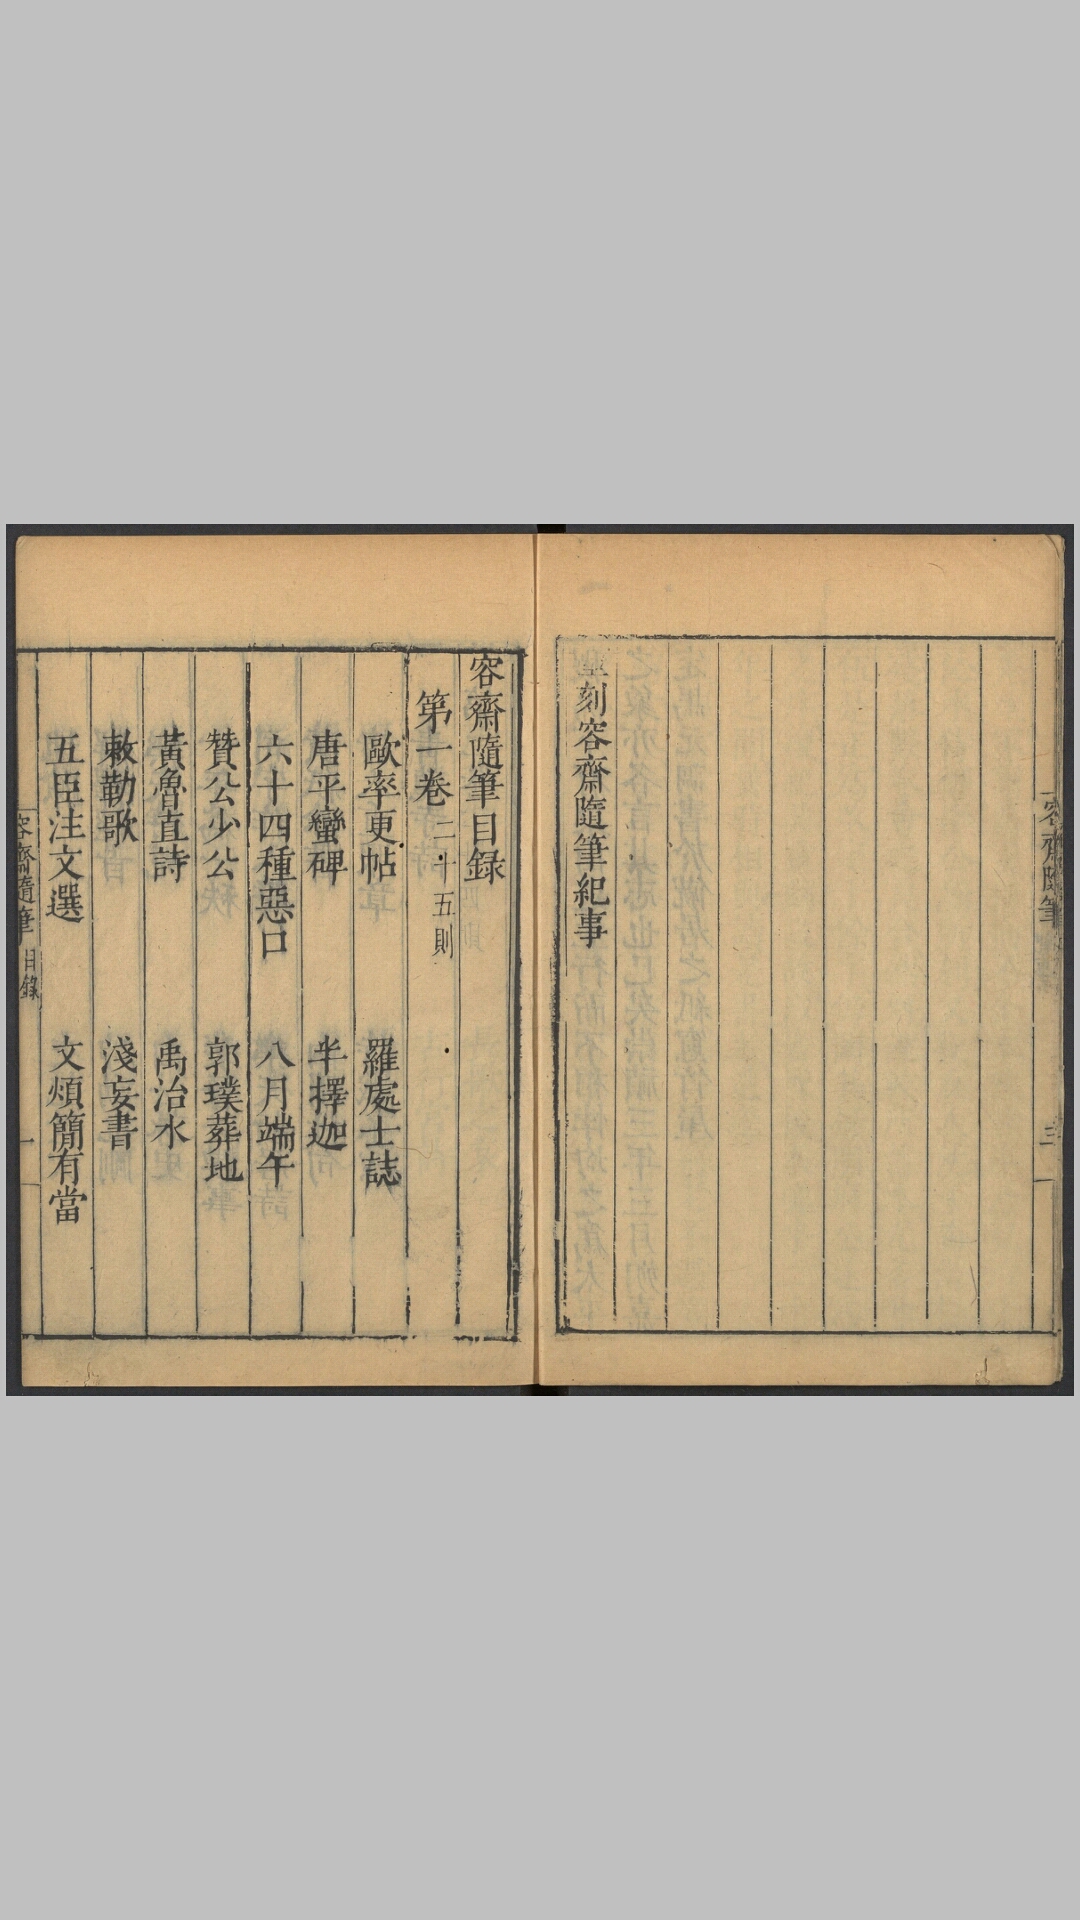 重刻容齋隨筆紀事
容齋隨筆
三
容齋隨筆目録
第一卷 二十五則
歐率更帖 羅處士誌
唐平蠻碑 半擇迦
六十四種惡口 八月端午
贊公少公 郭璞葬地
黃魯直詩 禹治水
敕勒歌 淺妄書
五臣注文選 文煩簡有當
容齋隨筆 目錄 一